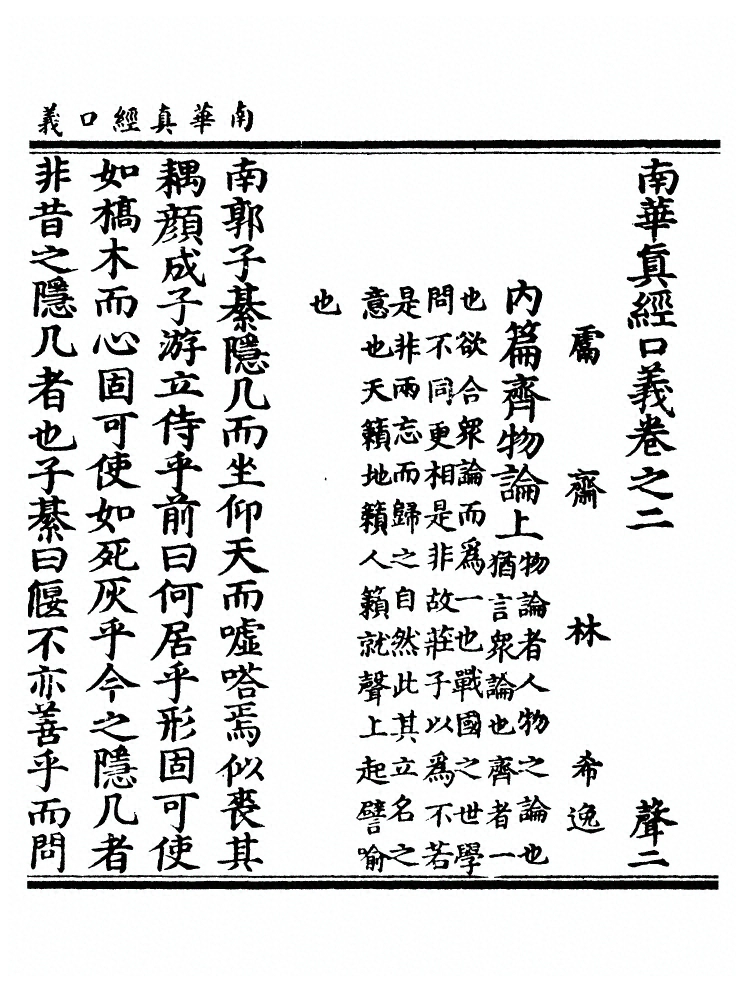 南華真經口義
南華眞經口義卷之二 聲二
鬳齋 林 希逸
內篇齊物論上
物論者人物之論也
猶言衆論也齊者一
也欲合衆論而爲一也戰國之世學
問不同更相是非故莊子以爲不若
是非兩忘而歸之自然此其立名之
意也天籟地籟人籟就聲上起譬喻
也
南郭子綦隱几而坐仰天而噓嗒焉似喪其
耦顏成子游立侍乎前曰何居乎形固可使
如槁木而心固可使如死灰乎今之隱几者
非昔之隱几者也子綦曰偃不亦善乎而問